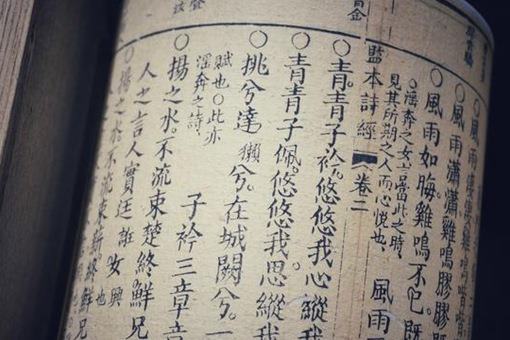 ○風雨瀟瀟雞鳴膠膠
○風雨如晦雞鳴不已既
○淫奔之女言當此之時
見其所期之人而心悅也
風雨
監本詩經
卷二
○青青子衿。悠悠我心縱我
○青青子佩。悠悠我思縱我
○挑兮達獺兮。在城闕兮。一
賦也○此亦
淫奔之詩
子衿三章章
○揚之水。不流束楚終鮮兄
人之言人實廷誑女興也
○揚之水不流束薪終鮮兄